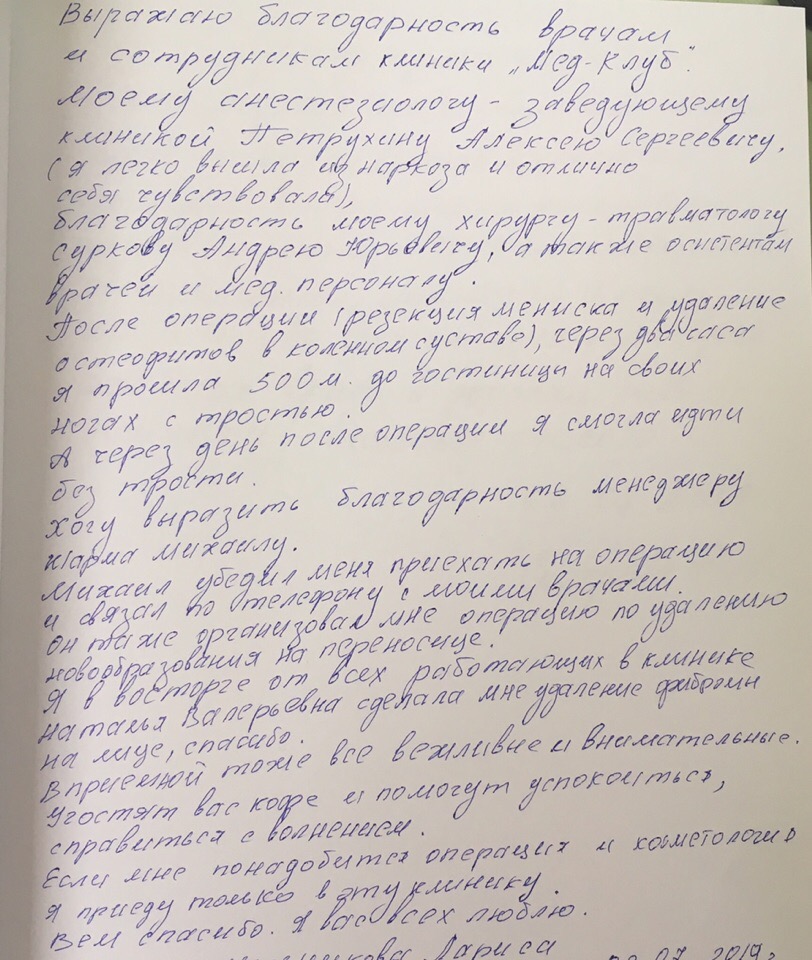 Выражаю благодарность врачам
и сотрудникам клиники „Мед-Клуб".
Моему анестезиологу - заведующему
клиникой Петрухину Алексею Сергеевичу,
(я легко вышла из наркоза и отлично
себя чувствовала),
благодарность моему хирургу-травматологу
Суркову Андрею Юрьевичу, а также осистентам
врачей и мед. персоналу.
После операции (резекция мениска и удаление
остеофитов в коленном суставе), через два часа
я прошла 500 м. до гостиницы на своих
ногах с тростью.
А через день после операции я смогла идти
без трости.
Хочу выразить благодарность менеджеру
Михаилу.
Михаил убедил меня приехать на операцию
и связал по телефону с моими врачами.
Он также организовал мне операцию по удалению
новообразования на переносице.
Я в восторге от всех работающих в клинике
Наталья Валерьевна сделала мне удаление
на лице, спасибо.
В приемной тоже все вежливые и внимательные.
Угостят вас кофе и помогут успокоиться,
справиться с волнением.
Если мне понадобится операция и косметология
я приеду только в эту клинику.
Вем спасибо. Я вас всех люблю.
Лариса 07. 2019г